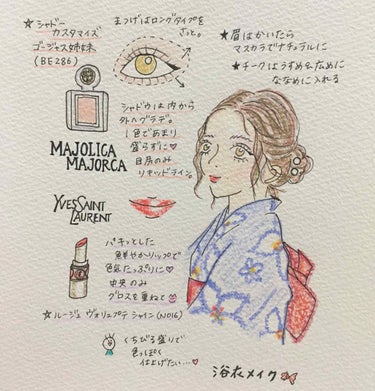 ☆シャドー
カスタマイズ
ゴージャス姉妹
(BE286)
まつげはロングタイプを
さっと。
★眉はかいたら
マスカラでナチュラルに
★チークはうすめ&広めに
ななめに入れる
シャドウは内から
外へグラデ。
1色であまり
盛らずに♡
目尻のみ
リキッドライン。
MAJOLICA
MAJORCA
YVES SAINT
LAURENT
パキッとした
鮮やかリップで
色気たっぷりに♡
中央のみ
グロスを重ねて
☆ルージュ ヴォリュプテ シャイン(No16)
くちびる盛りで
色っぽく
仕上げたい…♡
浴衣メイク